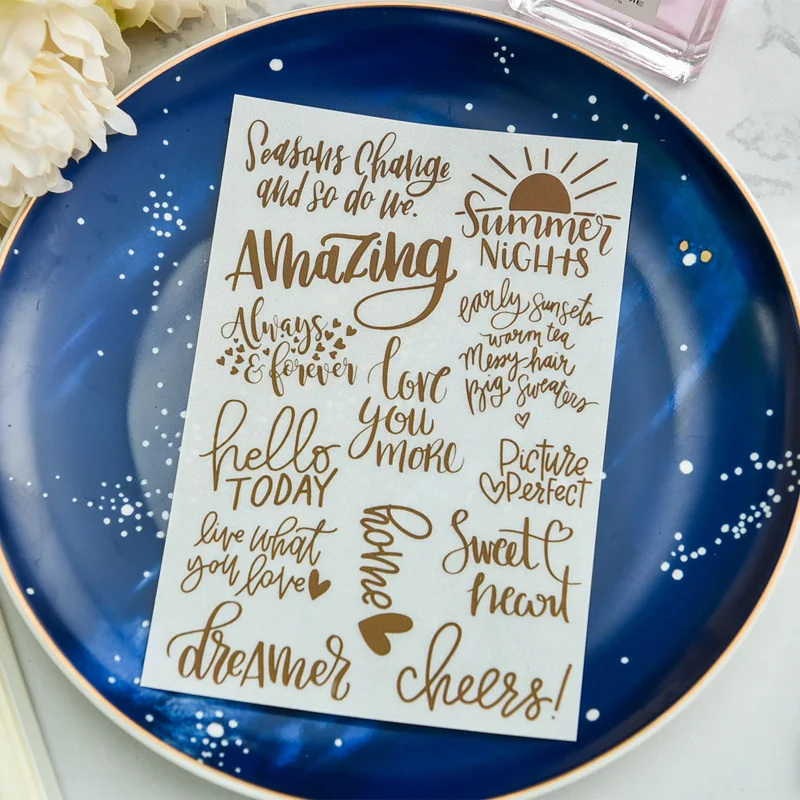 Seasons Change
and so do we.
Summer
NIGHTS
Amazing
early sunsets
warm tea
Messy hair
Big Sweaters
Always
& forever
love
you
more
hello
TODAY
Picture
Perfect
live what
you love
home
Sweet
heart
dreamer
cheers!